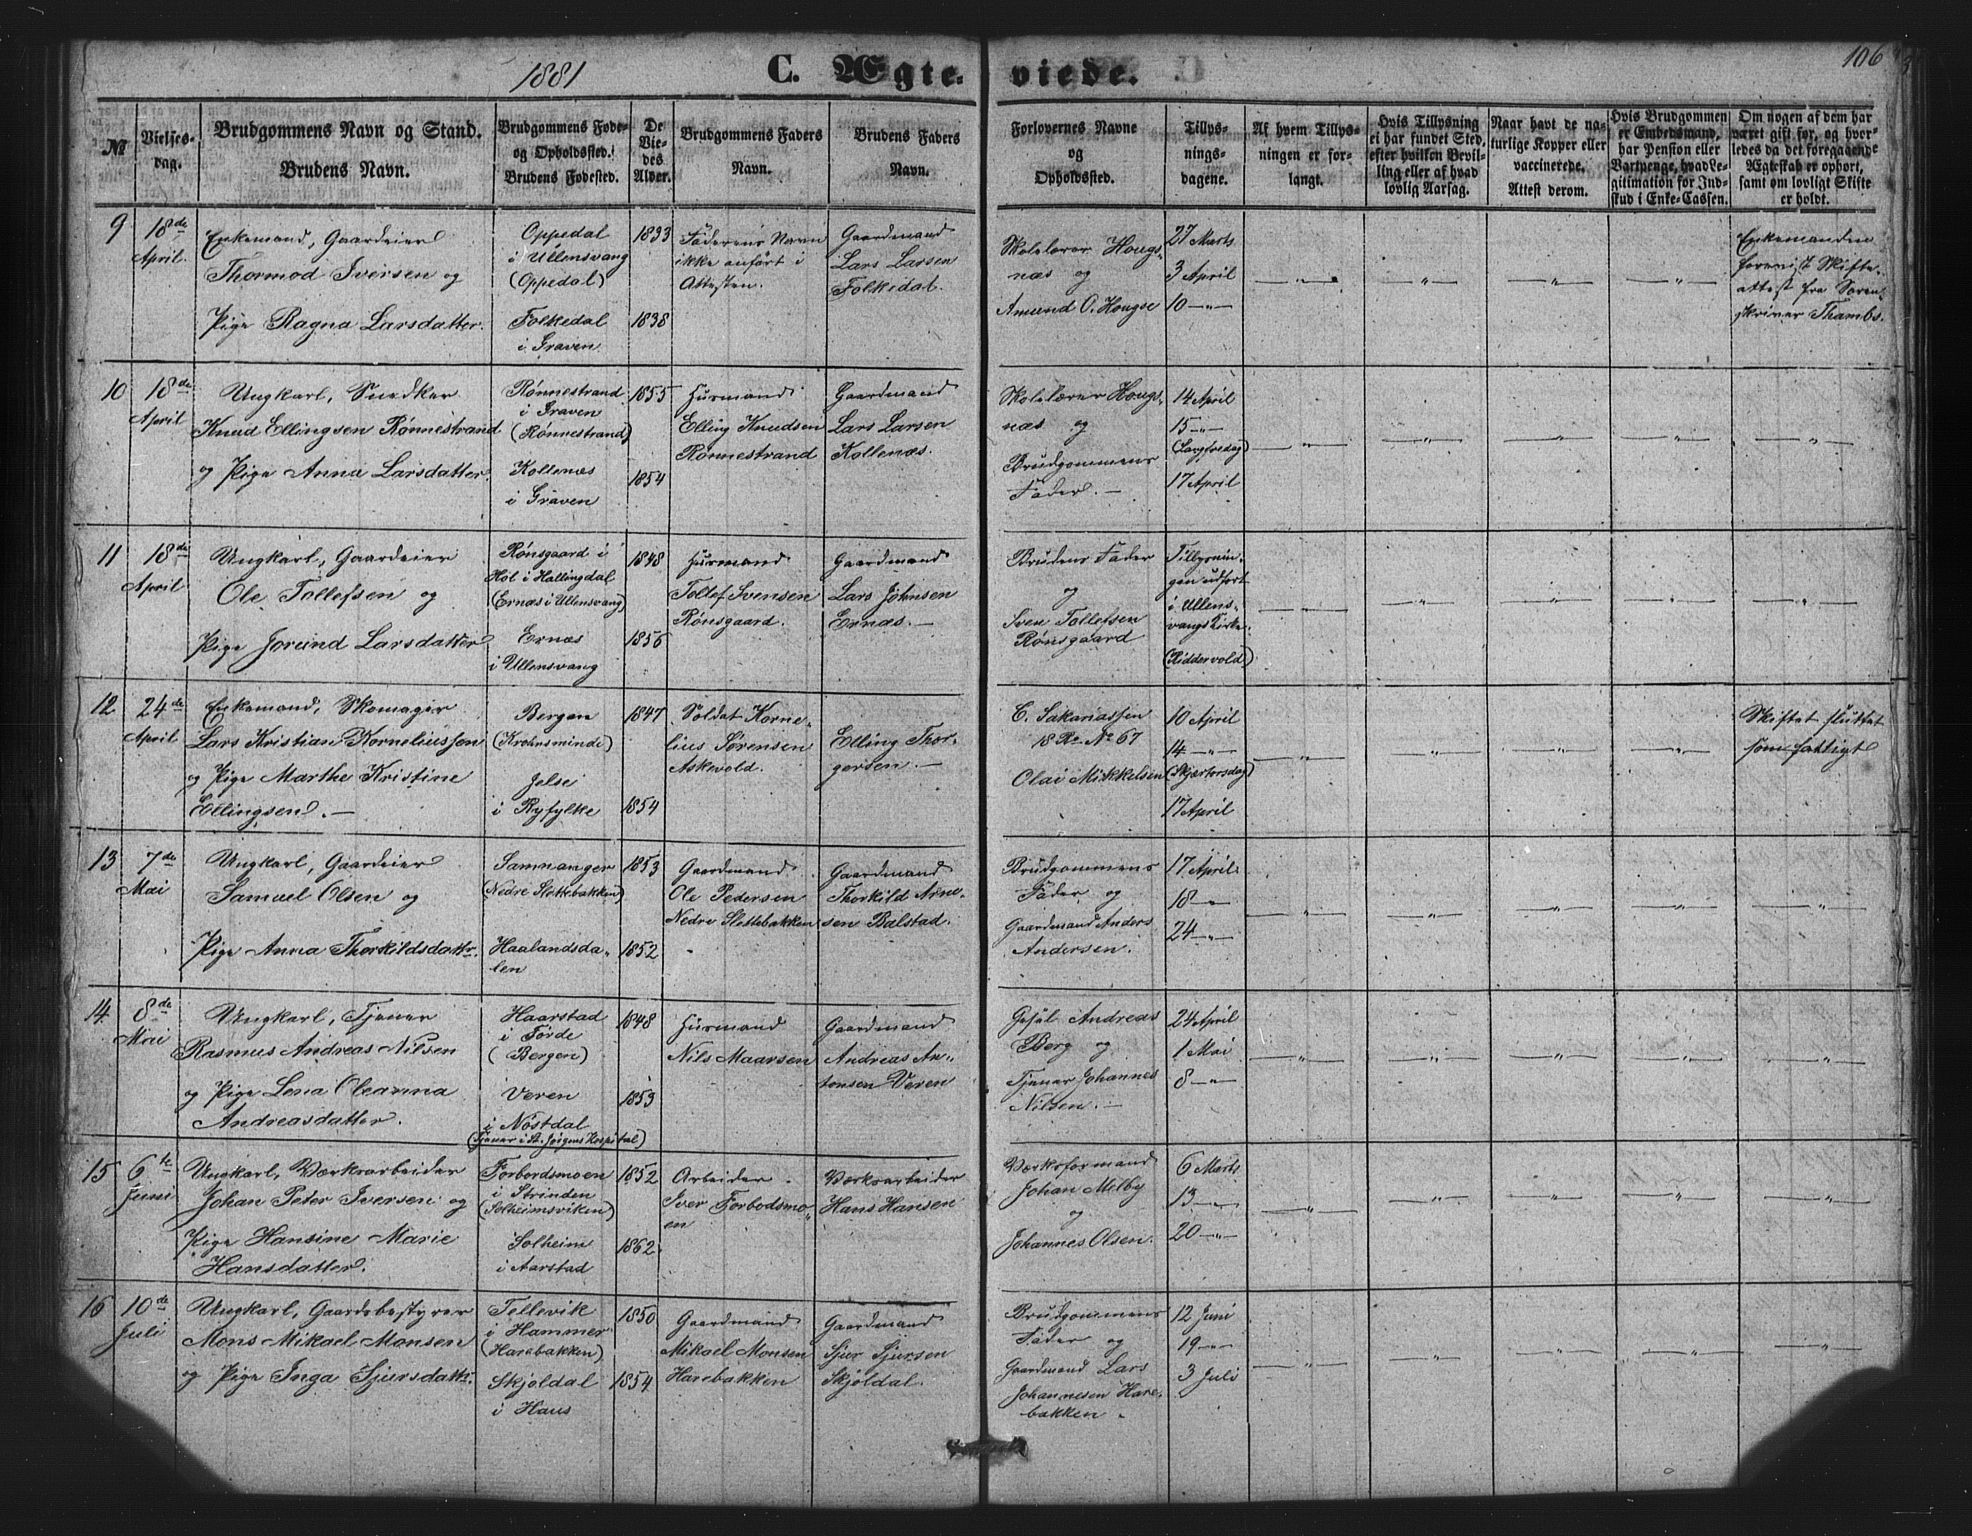 1881
C. Ægteviede.
106
№
Vielsesdag.
Brudgommens Navn og Stand.
Brudens Navn.
Brudgommens Føde-
og Opholdssted.
Brudens Fødested.
De
Vie-
des
Alder.
Brudgommens Faders
Navn.
Brudens Faders
Navn.
Forlovernes Navne
og
Opholdssted.
Tillys-
nings-
dagene.
Af hvem Tillys-
ningen er for-
langt.
Hvis Tillysning
ei har fundet Sted,
efter hvilken Bevil-
ling eller af hvad
lovlig Aarsag.
Naar havt de na-
turlige Kopper eller
vaccinerede.
Attest derom.
Hvis Brudgommen
er Embedsmand,
har Pension eller
Vartpenge, hvad Le-
gitimation for Ind-
skud i Enke-Cassen.
Om nogen af dem har
været gift før, og hvor-
ledes da det foregaaende
Ægteskab er ophørt,
samt om lovligt Skifte
er holdt.
9
18de
April.
Enkemand, Gaardeier
Thormod Iversen og
Pige Ragna Larsdatter.
Oppedal
i Ullensvang
(Oppedal)
Folkedal
i Graven
1833
1838
Faderens Navn
ikke anført i
Attesten.
Gaardmand
Lars Larsen
Folkedal.
Skolelærer Hougs-
næs og
Amund O. Hougse
27 Marts
3 April
10 -"-
-"-
-"-
-"-
-"-
Enkemanden
forevist Skifte-
attest fra Soren-
skriver Thambs.
10
18de
April
Ungkarl, Snedker
Knud Ellingsen Rønnestrand
og Pige Anna Larsdatter.
Rønnestrand
i Graven
(Rønnestrand)
Kollenæs
i Graven
1855
1854
Husmand
Elling Knudsen
Rønnestrand
Gaardmand
Lars Larsen
Kollenæs.
Skolelærer Hougs-
næs og
Brudgommens
Fader. -
14 April
15 -"-
(Langfredag)
17 April
-"-
-"-
-"-
-"-
-"-
11
18de
April
Ungkarl, Gaardeier
Ole Tollefsen og
Pige Jorund Larsdatter
Rønsgaard i
Hol i Hallingdal
(Ernæs i Ullensvang)
Ernæs
i Ullensvang
1848
1856
Husmand
Tollef Svensen
Rønsgaard.
Gaardmand
Lars Johnsen
Ernæs. -
Brudens Fader
og
Sven Tollefsen
Rønsgaard
Tillysnin-
gen udført
i Ullens-
vangs Kirke.
(Riddervold)
-"-
-"-
-"-
-"-
-"-
12
24de
April
Enkemand, Skomager
Lars Kristian Korneliussen
og Pige Marthe Kristine
Ellingsen. -
Bergen
(Krohnsminde)
Jelse
i Ryfylke
1847
1854
Soldat Korne-
lius Sørensen
Askevold.
Elling Thor-
gersen. -
C. Sakariassen
18 Ro. No 67
Olai Mikkelsen
10 April
14 -"-
(Skjærtorsdag)
17 April
-"-
-"-
-"-
-"-
Skiftet sluttet
som fattigt
13
7de
Mai
Ungkarl, Gaardeier
Samuel Olsen og
Pige Anna Thorkildsdattr.
Samnanger
(Nedre Slettebakken)
Haalandsda-
len
1853
1852
Gaardmand
Ole Pedersen
Nedre Slettebakken
Gaardmand
Thorkild Arne-
sen Balstad.
Brudgommens
Fader og
Gaardmand Anders
Andersen.
17 April
18 -"-
24 -"-
-"-
-"-
-"-
-"-
-"-
14
8de
Mai
Ungkarl, Tjener
Rasmus Andreas Nilsen
og Pige Lena Oleanna
Andreasdatter.
Haarstad
i Førde
(Bergen)
Veren
i Nøstdal
(Tjener i St. Jørgens Hospital)
1848
1853
Husmand
Nils Maarsen
Gaardmand
Andreas An-
tonsen Veren
Gesjøl Andreas
Berg og
Tjener Johannes
Nilsen. -
24 April
1 Mai
8 -"-
-"-
-"-
-"-
-"-
-"-
15
6te
Juni
Ungkarl, Værksarbeider
Johan Peter Iversen og
Pige Hansine Marie
Hansdatter.
Forbordsmoen
i Strinden
(Solheimsviken)
Solheim
i Aarstad
1852
1862
Arbeider
Iver Forbodsmo-
en
Værksarbeider
Hans Hansen
Værksformand
Johan Melby
og
Johannes Olsen.
6 Marts
13 -"-
20 -"-
-"-
-"-
-"-
-"-
-"-
16
10de
Juli
Ungkarl, Gaardsbestyrer
Mons Mikael Monsen
og Pige Inga Sjursdattr.
Tellevik
i Hammer
(Harebakken)
Skjoldal
i Haus
1850
1854
Gaardmand
Mikael Monsen
Harebakken
Gaardmand
Sjur Sjursen
Skjøldal.
Brudgommens
Fader og
Gaardmand Lars
Johannesen Hare-
bakken.
12 Juni
19 -"-
3 Juli
-"-
-"-
-"-
-"-
-"-